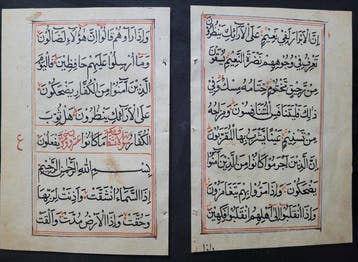 إِنَّ الْأَبْرَارَ لَفِي نَعِيمٍ عَلَى الْأَرَائِكِ يَنْظُرُونَ
تَعْرِفُ فِي وُجُوهِهِمْ نَضْرَةَ النَّعِيمِ يُسْقَوْنَ
مِنْ رَحِيقٍ مَخْتُومٍ خِتَامُهُ مِسْكٌ وَفِي
ذَلِكَ فَلْيَتَنَافَسِ الْمُتَنَافِسُونَ وَمِزَاجُهُ
مِنْ تَسْنِيمٍ عَيْنًا يَشْرَبُ بِهَا الْمُقَرَّبُونَ
إِنَّ الَّذِينَ أَجْرَمُوا كَانُوا مِنَ الَّذِينَ آمَنُوا
يَضْحَكُونَ وَإِذَا مَرُّوا بِهِمْ يَتَغَامَزُونَ
وَإِذَا انْقَلَبُوا إِلَى أَهْلِهِمُ انْقَلَبُوا فَكِهِينَ
وَإِذَا
وَإِذَا رَأَوْهُمْ قَالُوا إِنَّ هَؤُلَاءِ لَضَالُّونَ
وَمَا أُرْسِلُوا عَلَيْهِمْ حَافِظِينَ فَالْيَوْمَ
الَّذِينَ آمَنُوا مِنَ الْكُفَّارِ يَضْحَكُونَ
عَلَى الْأَرَائِكِ يَنْظُرُونَ هَلْ ثُوِّبَ
الْكُفَّارُ مَا كَانُوا يَفْعَلُونَ
ع
بِسْمِ اللَّهِ الرَّحْمَنِ الرَّحِيمِ
إِذَا السَّمَاءُ انْشَقَّتْ وَأَذِنَتْ لِرَبِّهَا
وَحُقَّتْ وَإِذَا الْأَرْضُ مُدَّتْ وَأَلْقَتْ